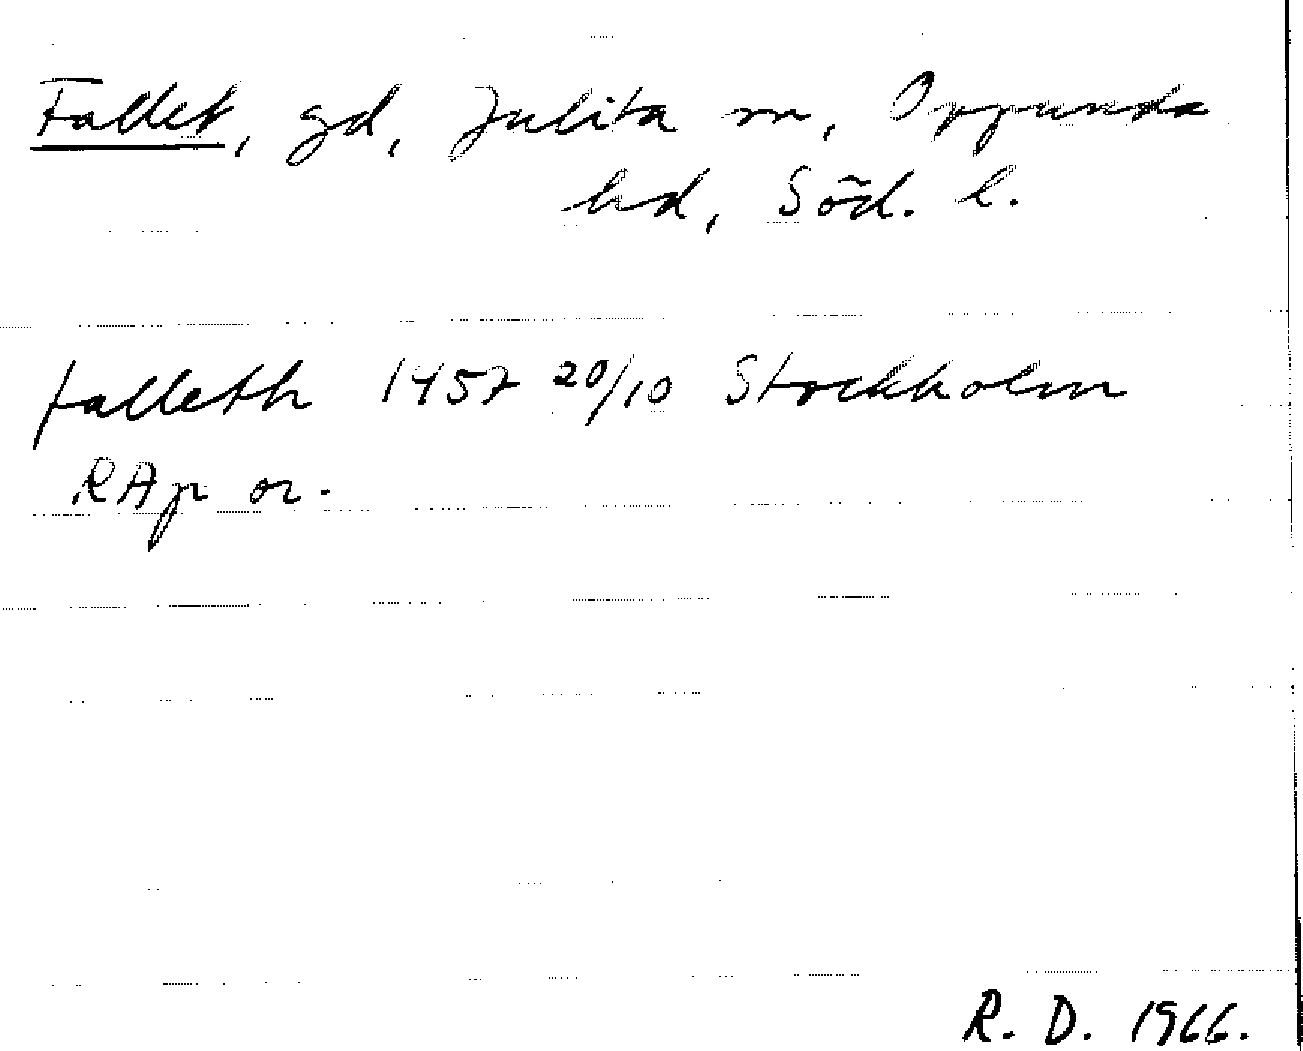 Fallet, gd, Julita sn, Oppunda
hd, Söd. l.
falleth 1457 20/10 Stockholm
RAp or.
R. D. 1966.